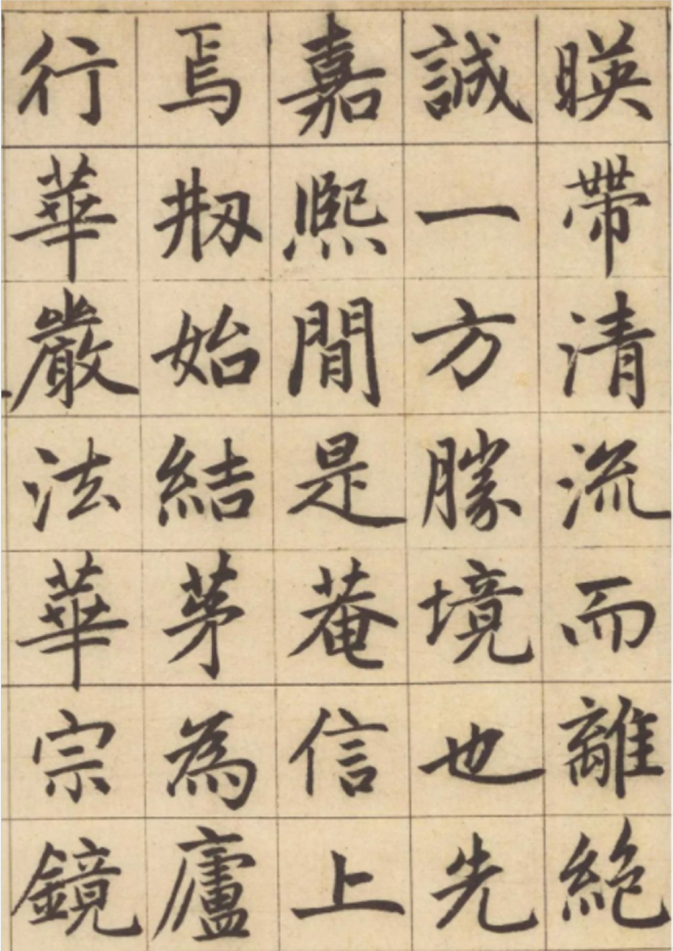 暎帶清流而離絶
誠一方勝境也先
嘉熈閒是菴信上
焉剏始結茅為廬
行華嚴法華宗鏡